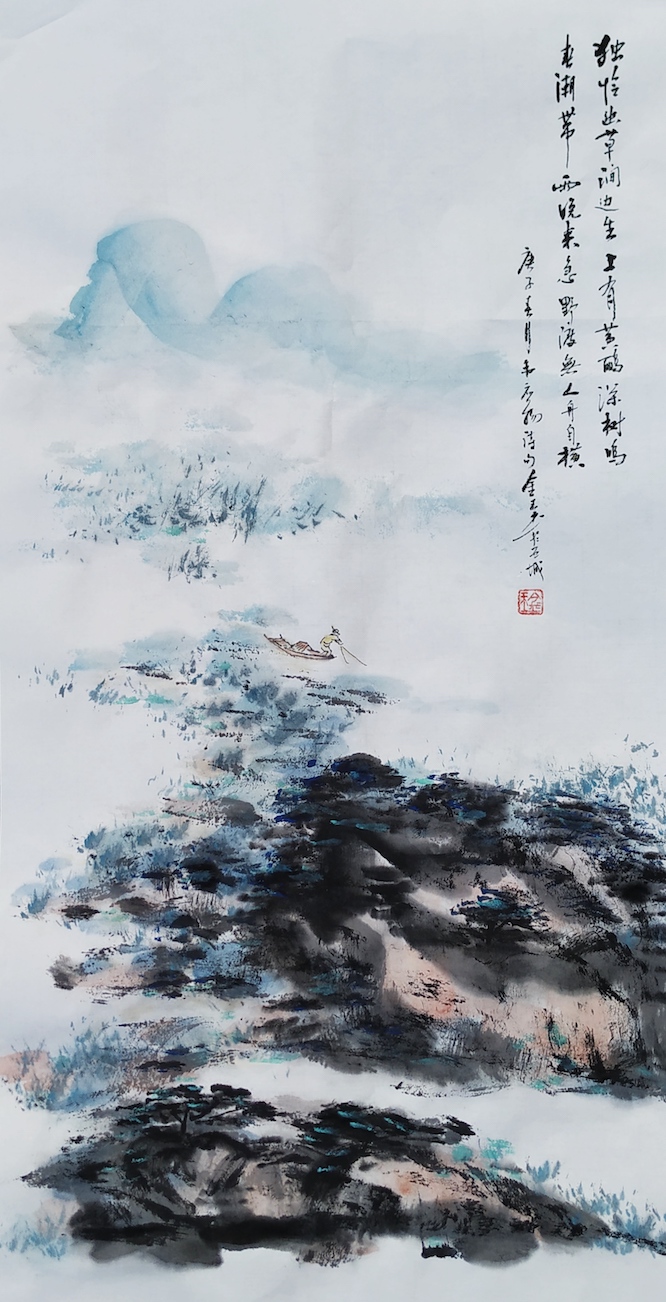 独怜幽草涧边生 上有黄鹂深树鸣
春潮带雨晚来急 野渡無人舟自横
庚子春月韦应物诗句金